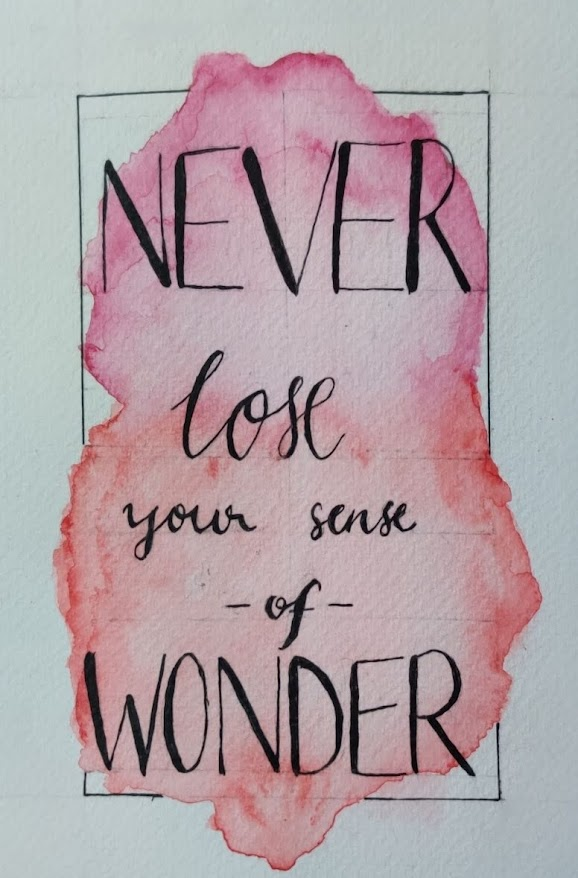 NEVER
lose
your sense
-of-
WONDER